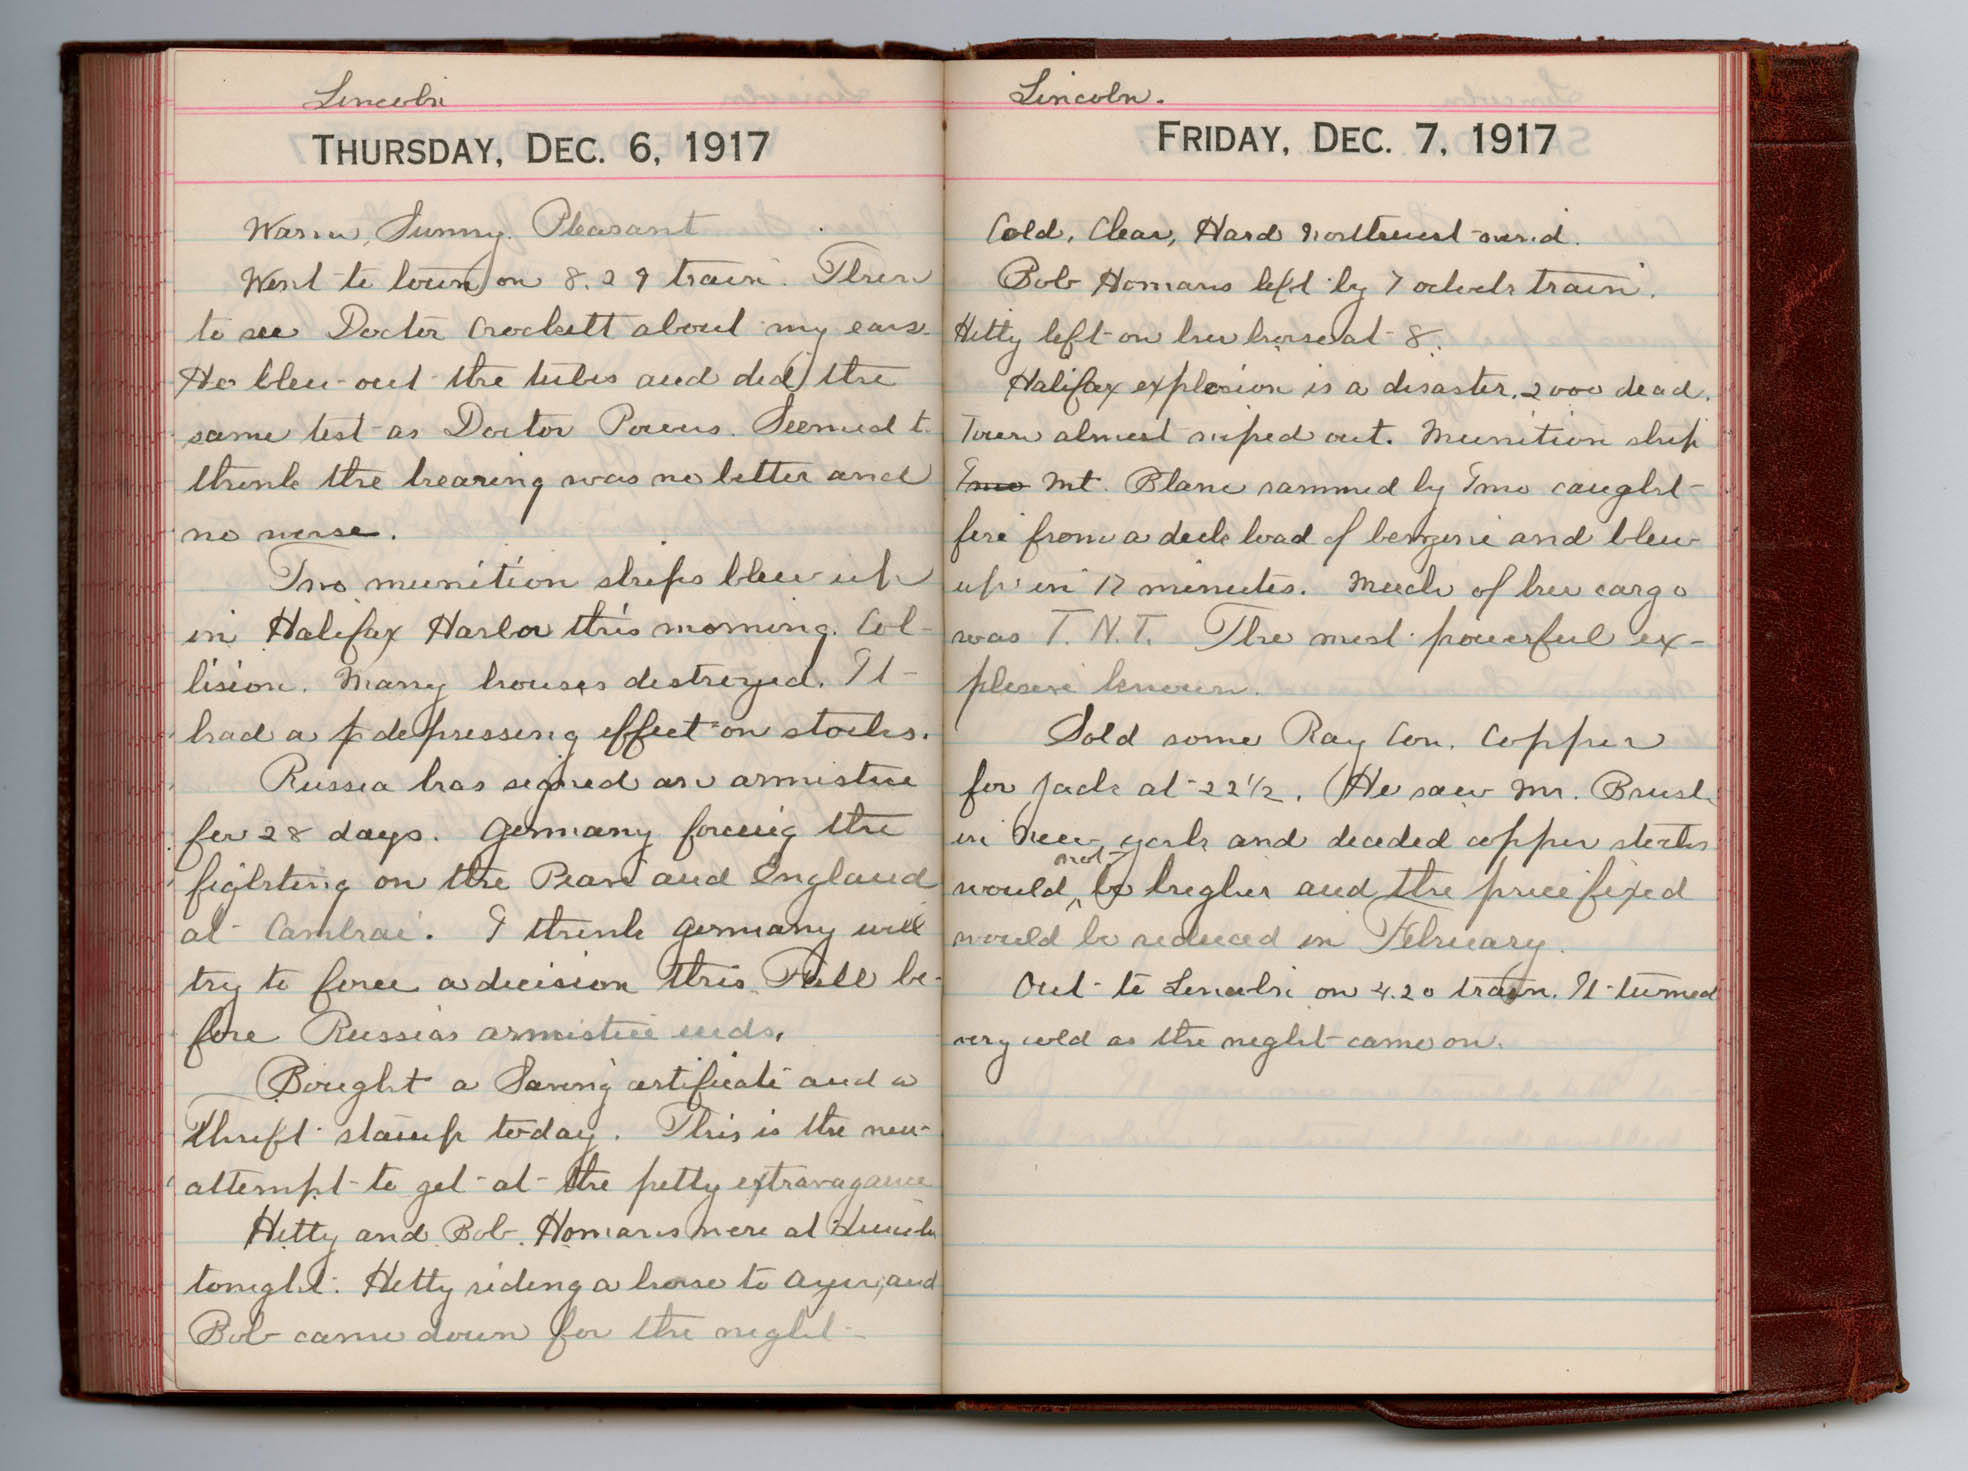 Lincoln
THURSDAY, DEC. 6, 1917
Warm, Sunny. Pleasant
Went to town on 8.29 train. Then
to see Doctor Crockett about my ears.
He blew out the tubes and did the
same test as Doctor Powers. Seemed to
think the hearing was no better and
no worse.
Two munition ships blew up
in Halifax Harbor this morning. Col-
lision. Many houses destroyed. It
had a depressing effect on stocks.
Russia has signed an armistice
for 28 days. Germany forcing the
fighting on the Piave and England
at Cambrai. I think Germany will
try to force a decision this Fall be-
fore Russias armistice ends.
Bought a Saving certificate and a
Thrift stamp today. This is the new
attempt to get at the petty extravagance
Hetty and Bob Homans were at
tonight. Hetty riding a horse to Ayer, and
Bob came down for the night
Lincoln.
FRIDAY, DEC. 7, 1917
Cold, Clear, Hard northwest wind.
Bob Homans left by 7 oclock train.
Hetty left on her horse at 8.
Halifax explosion is a disaster. 2000 dead.
Town almost wiped out. Munition ship
Imo Mt. Blanc rammed by Imo caught
fire from a deck load of benzine and blew
up in 17 minutes. Much of her cargo
was T.N.T. The most powerful ex-
plosive known.
Sold some Ray Con. Copper
for Jack at 22 1/2. (He saw Mr. Brush
in New York and decided copper stocks
would not be higher and the price fixed
would be reduced in February.
Out to Lincoln on 4.20 train. It turned
very cold as the night came on.